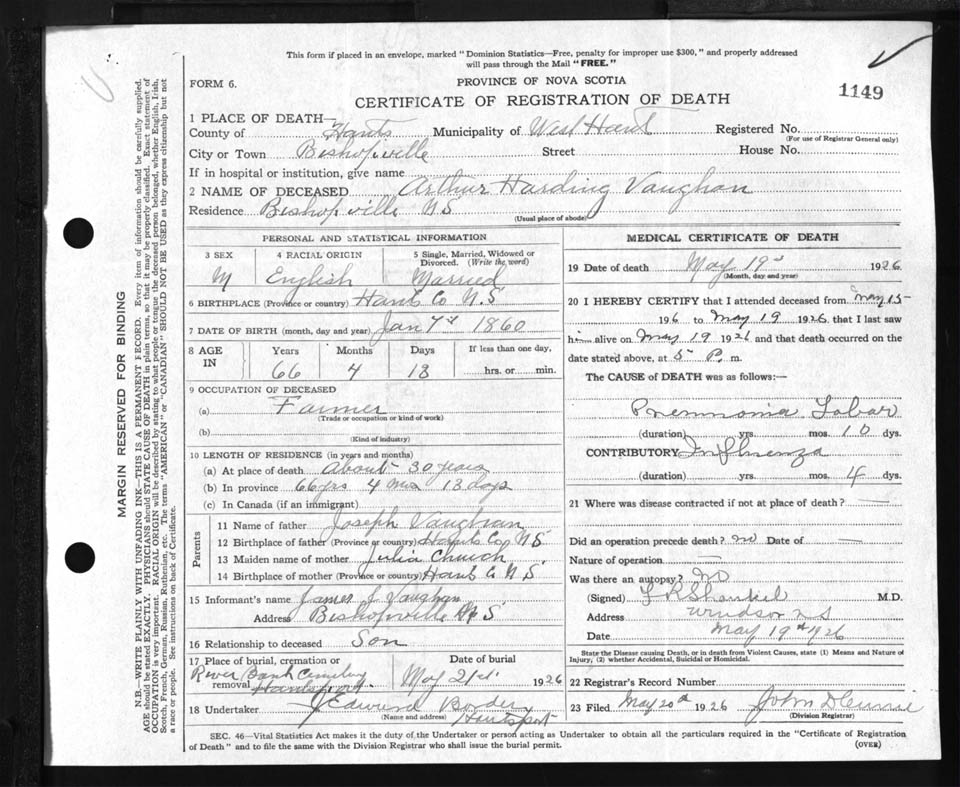 This form if placed in an envelope, marked "Dominion Statistics—Free, penalty for improper use $300," and properly addressed
will pass through the Mail "FREE."
FORM 6.
PROVINCE OF NOVA SCOTIA
1149
CERTIFICATE OF REGISTRATION OF DEATH
1 PLACE OF DEATH—
County of Hants Municipality of West Hant Registered No.
(For use of Registrar General only)
City or Town Bishopville Street House No.
If in hospital or institution, give name
2 NAME OF DECEASED Arthur Harding Vaughan
Residence Bishopville NS
(Usual place of abode)
PERSONAL AND STATISTICAL INFORMATION
3 SEX 4 RACIAL ORIGIN 5 Single, Married, Widowed or
Divorced. (Write the word)
M English Married
6 BIRTHPLACE (Province or country) Hants Co N.S
7 DATE OF BIRTH (month, day and year) Jan 7th 1860
8 AGE IN Years Months Days If less than one day,
66 4 13 hrs. or min.
9 OCCUPATION OF DECEASED
(a) Farmer
(Trade or occupation or kind of work)
(b)
(Kind of industry)
10 LENGTH OF RESIDENCE (in years and months)
(a) At place of death About 30 years
(b) In province 66 yrs 4 mos 13 days
(c) In Canada (if an immigrant)
Parents
11 Name of father Joseph Vaughan
12 Birthplace of father (Province or country) Hants Co N S
13 Maiden name of mother Julia Church
14 Birthplace of mother (Province or country) Hants Co N S
15 Informant's name James J Vaughan
Address Bishopville N S
16 Relationship to deceased Son
17 Place of burial, cremation or removal Date of burial
River Bank Cemetery
Hantsport May 21st 1926
18 Undertaker J Edward Borden
(Name and address) Hantsport
MEDICAL CERTIFICATE OF DEATH
19 Date of death May 19th 1926
(Month, day and year)
20 I HEREBY CERTIFY that I attended deceased from May 15
196 to May 19 1926 that I last saw
him alive on May 19 1926 and that death occurred on the
date stated above, at 5 P. m.
The CAUSE of DEATH was as follows:—
Pneumonia Lobar
(duration) yrs. mos. 10 dys.
CONTRIBUTORY Influenza
(duration) yrs. mos. 4 dys.
21 Where was disease contracted if not at place of death? —
Did an operation precede death? no Date of —
Nature of operation —
Was there an autopsy? No
(Signed) M.D.
Address Windsor N S
Date May 19th 1926
State the Disease causing Death, or in death from Violent Causes, state (1) Means and Nature of
Injury, (2) whether Accidental, Suicidal or Homicidal.
22 Registrar's Record Number
23 Filed May 20th 1926 John D
(Division Registrar)
SEC. 46—Vital Statistics Act makes it the duty of the Undertaker or person acting as Undertaker to obtain all the particulars required in the "Certificate of Registration
of Death" and to file the same with the Division Registrar who shall issue the burial permit.
(OVER)
MARGIN RESERVED FOR BINDING
N.B.—WRITE PLAINLY WITH UNFADING INK—THIS IS A PERMANENT RECORD. Every item of information should be carefully supplied.
AGE should be stated EXACTLY. PHYSICIANS should STATE CAUSE OF DEATH in plain terms, so that it may be properly classified. Exact statement of
OCCUPATION is very important. RACIAL ORIGIN will be described by stating to what people or tongue the deceased person belonged, whether English, Irish,
Scotch, French, German, Russian, Ruthenian, etc. The terms "AMERICAN" or "CANADIAN" SHOULD NOT BE USED as they express citizenship but not
a race or people. See instructions on back of Certificate.